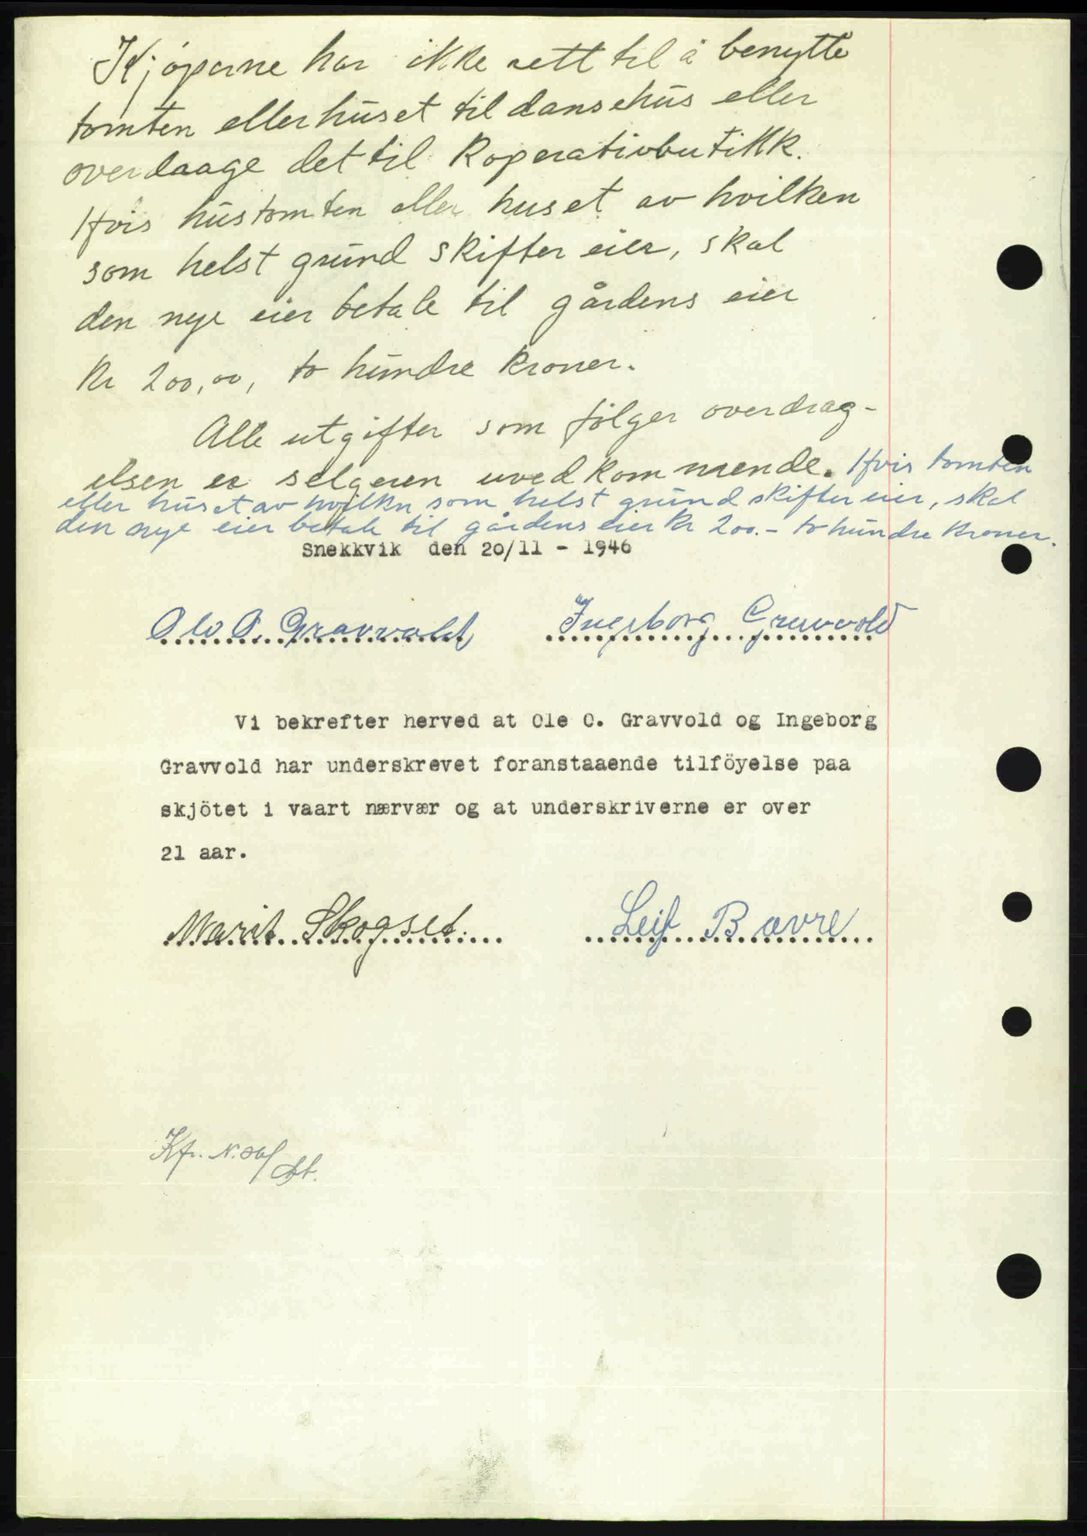 Kjøperne har ikke rett til å benytte
tomten eller huset til dansehus eller
overdaage det til Koperativbutikk.
Hvis hustomten eller huset av hvilken
som helst grund skifter eier, skal
den nye eier betale til gårdens eier
Kr 200,00, to hundre kroner.
Alle utgifter som følger overdrag-
elsen er selgeren uvedkommende. Hvis tomten
eller huset av hvilkn som helst grund skifter eier, skal
den nye eier betale til gårdens eier kr 200.- to hundre kroner.
Snekkvik den 20/11 - 1946
Ole O. Gravvold Ingeborg Gravvold
Vi bekrefter herved at Ole O. Gravvold og Ingeborg
Gravvold har underskrevet foranstaaende tilföyelse paa
skjötet i vaart nærvær og at underskriverne er over
21 aar.
Marit Skogset. Leif Bævre
Kfr.